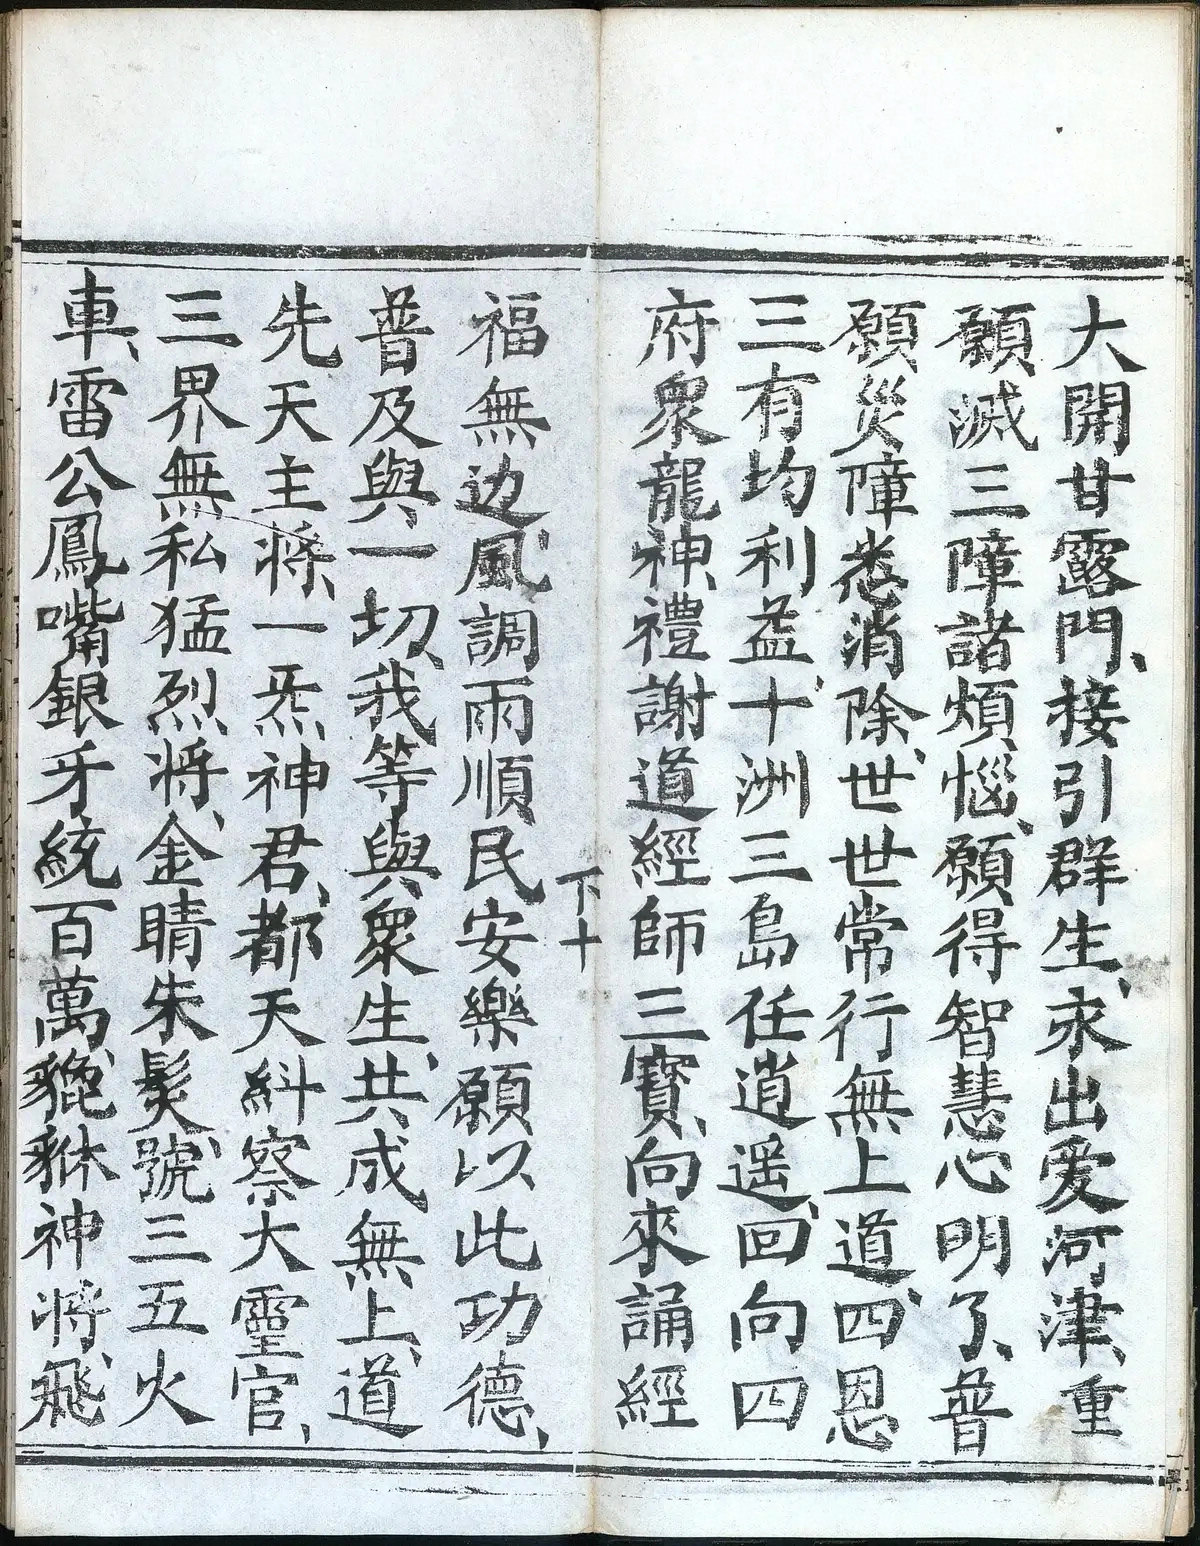 大開甘露門、接引群生、永出爱河津、重
願滅三障諸煩惱、願得智慧心明了、普
願災障悉消除、世世常行無上道、四恩
三有均利益、十洲三島任逍遥、回向四
府衆龍神、禮謝道經師三寶、向來誦經
下十
福無边、風調雨順民安樂願以此功德、
普及與一切、我等與衆生、共成無上、道
先天主將、一炁神君、都天糾察大靈官、
三界無私猛烈将、金睛朱髮、號三五火
車、雷公鳳嘴銀牙統百萬、貔貅神将、飛